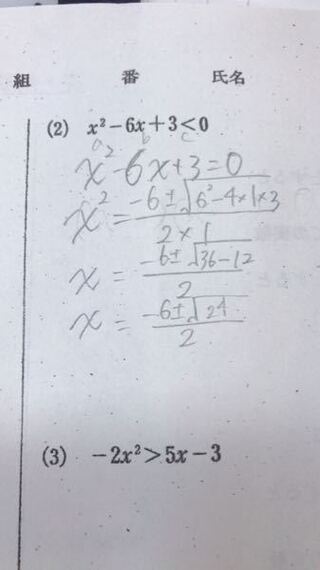 組 番 氏名
(2) x²−6x+3<0
a b c
x²-6x+3=0
x² = \frac{-6±\sqrt{6²-4×1×3}}{2×1}
x = \frac{-6±\sqrt{36-12}}{2}
x = \frac{-6±\sqrt{24}}{2}
(3) −2x²>5x−3